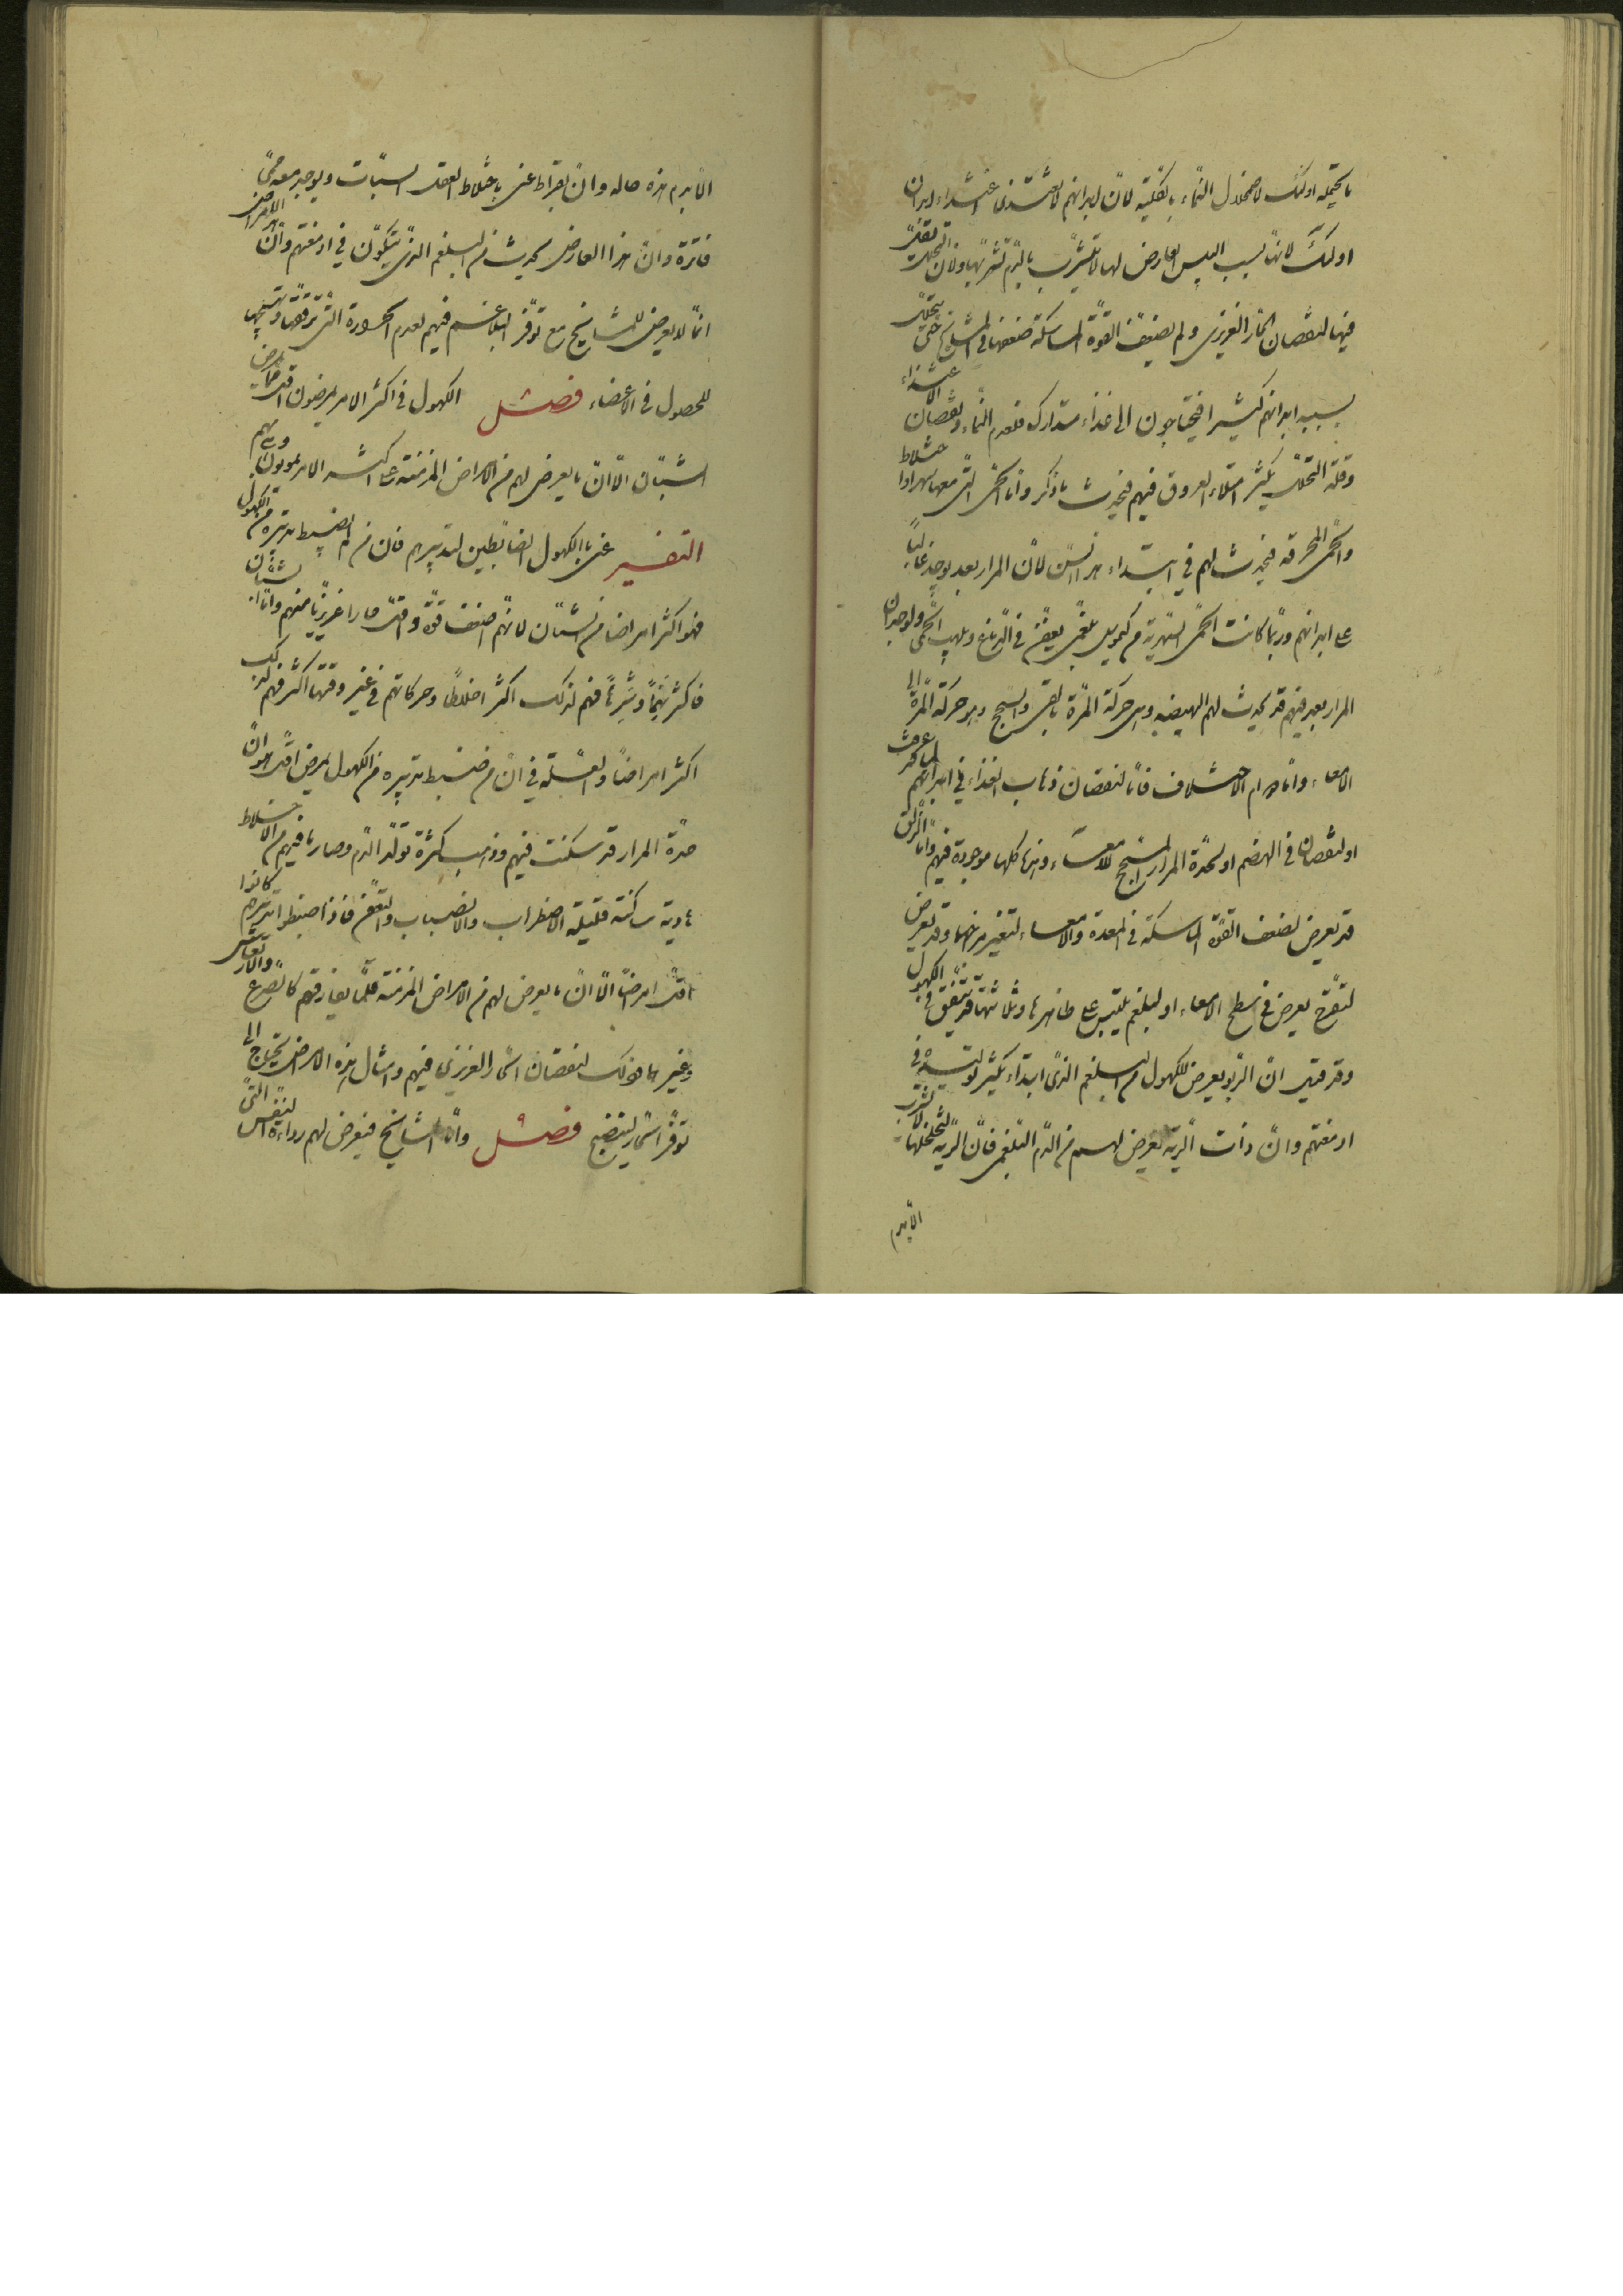 ما يحتمله اولئك لاضمحلال النماء بالكلية لان ابدانهم لا تغتذى اغتذاء ابدان
اولئك لانها بسبب اليبس العارض لها لا تتشرب بالدم تشربها ولان التحلل يقل
فيها لنقصان الحار الغريزى ولم يضعف القوة الماسكة ضعفها فى المشايخ حتى يتحلل
بسببه ابدانهم كثيرا فيحتاجون الى غذاء متدارك فلعدم النماء ونقصان الاغتذاء
وقلة التحلل يكثر امتلاء العروق فيهم فيحدث ما ذكر واما الحمى التى معها سهر او اختلاط
والحمى المحرقة فيحدث لهم فى ابتداء هذا السن لان المرار بعد يوجد غالبا
على ابدانهم وربما كانت الحمى السهرية من كيموس بلغمى يعفن فى الدماغ ويلهب الحمى ولوجدان
المرار بعد فيهم قد يحدث لهم الهيضة وهى حركة المرة بالقى والسحج وهو حركة المرة الى
الامعاء واما دوام الاختلاف فاما لنقصان ذهاب الغذاء فى ابدانهم
او لنقصان فى الهضم او لحدة المرار المسحج للامعاء وهذه كلها موجودة فيهم واما الزلق
قد تعرض لضعف القوة الماسكة فى المعدة والامعاء لتغير مزاجها وقد تعرض
لتقرح يعرض فى سطح الامعاء او لبلغم يلتبس على ظاهرها وثلاثتها قد يتفق فى الكهول
وقد قيل ان الربو يعرض للكهول من البلغم الذى ابتداء يكثر تولده فى
ادمغتهم وان ذات الرية تعرض لهم من الدم البلغمى فان الرية لتخلخلها لا تشرب
الا بدم
الا بدم هذه حاله وان بقراط عنى باختلاط العقل السبات ويوجد معه حمى
فاترة وان هذا العارض يحدث من البلغم الذى يتكون فى ادمغتهم وان هذه الامراض
انما لا يعرض للمشايخ مع توفر البلاغم فيهم لعدم الحرارة التى ترققها وتهيجها
للحصول فى الاعضاء فصل الكهول فى اكثر الامر يمرضون اقل مما يمرض
الشبان الا ان ما يعرض لهم من الامراض المزمنة على اكثر الامر يموتون وهى بهم
التفسير عنى بالكهول الضابطين لتدبيرهم فان من لم يضبط تدبيره من الكهول
فهو اكثر امراضا من الشبان لانهم اضعف قوة واقل حارا غريزيا منهم واما الشبان
فاكثر نهما وشرها فهم لذلك اكثر اخلاطا وحركاتهم فى غير وقتها اكثر فهم لذلك
اكثر امراضا والعلة فى ان من ضبط تدبيره من الكهول يمرض اقل هو ان
حدة المرار قد سكنت فيهم وذهب كثرة تولد الدم وصار ما فيهم من الاخلاط
هادية ساكنة قليلة الاضطراب والانصباب والتعفن فاذا ضبطوا تدبيرهم كانوا
اقل امراضا الا ان ما يعرض لهم من الامراض المزمنة قلما يفارقهم كالصرع والارتعاش
وغيرهما وذلك لنقصان الحار الغريزى فيهم وامثال هذه الامراض يحتاج الى
توفر الحار لينضج فصل واما المشايخ فيعرض لهم رداءة التنفس